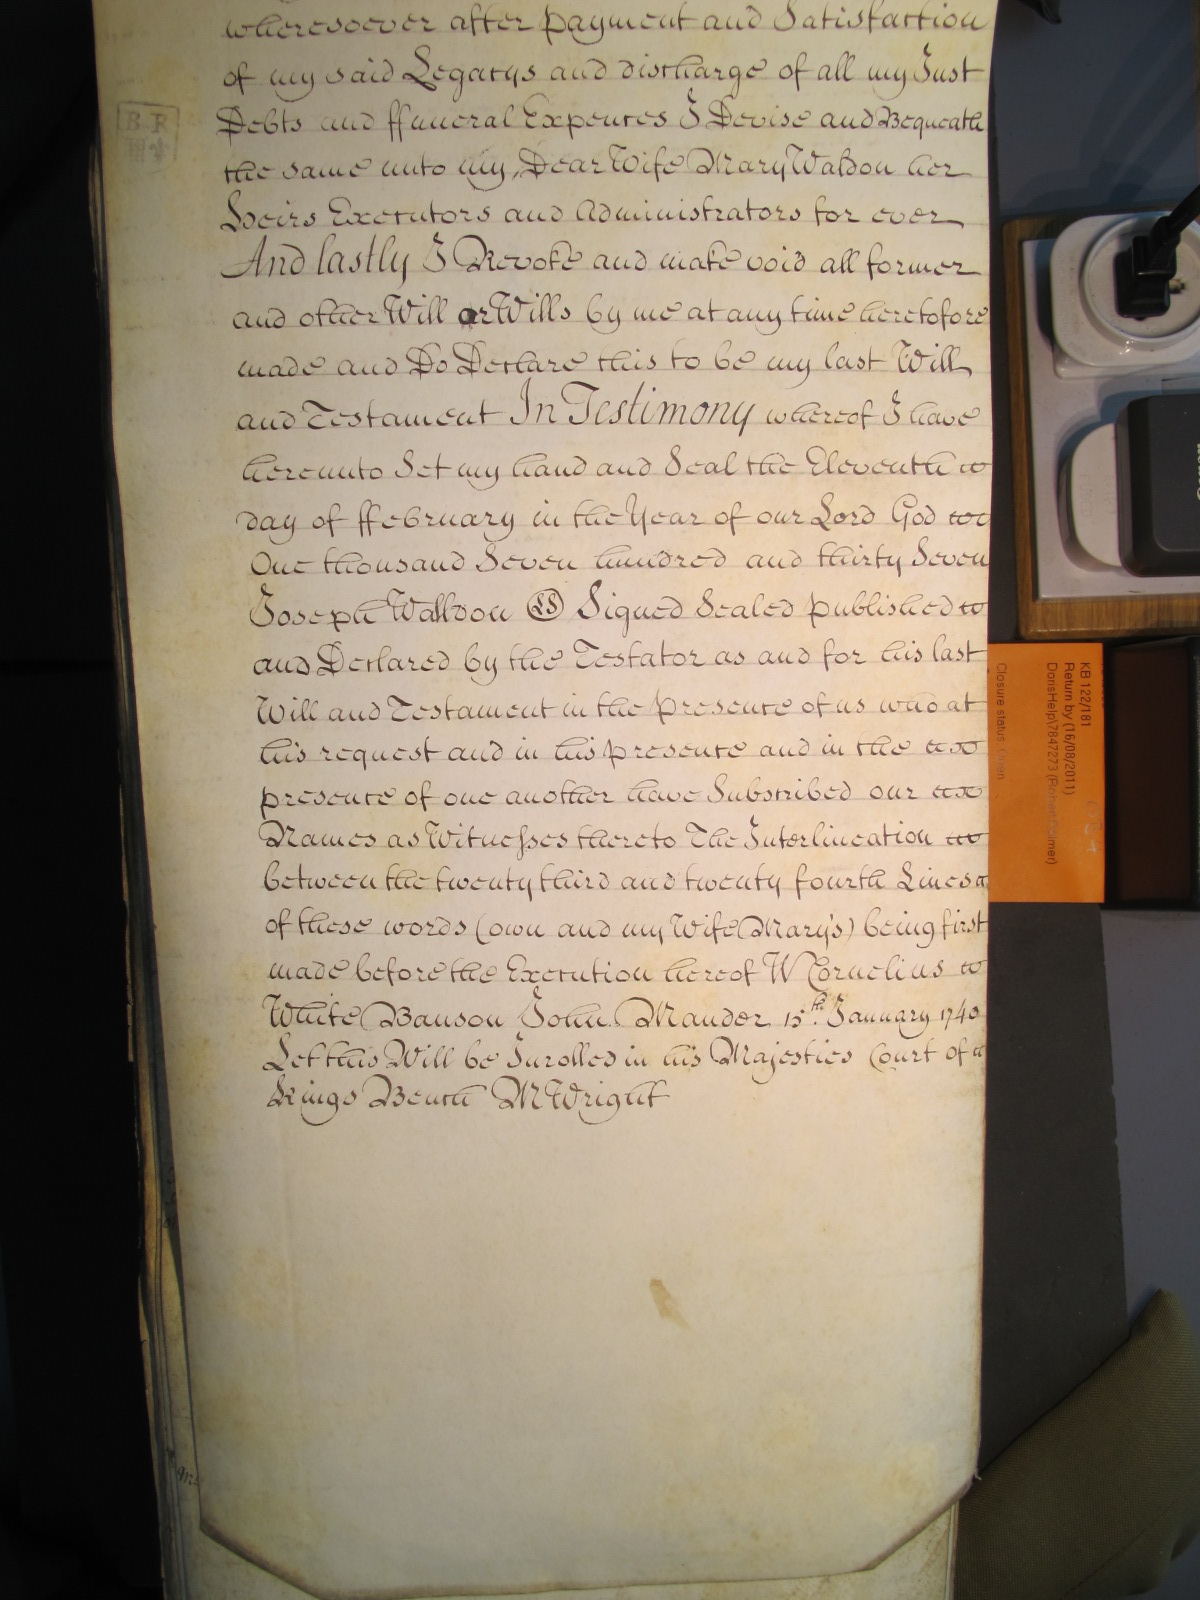 wheresoever after payment and Satisfaction
of my said Legacys and discharge of all my Just
Debts and ffuneral Expences I Devise and Bequeath
the same unto my Dear Wife Mary Waldon her
Heirs Executors and Administrators for ever
And lastly I Revoke and make void all former
and other Will or Wills by me at any time heretofore
made and Do Declare this to be my last Will
and Testament In Testimony whereof I have
hereunto Set my hand and Seal the Eleventh
day of ffebruary in the Year of our Lord God
One thousand Seven hundred and thirty Seven
Joseph Walldon LS Signed Sealed published
and Declared by the Testator as and for his last
Will and Testament in the presence of us who at
his request and in his presence and in the
presence of one another have Subscribed our
Names as Witnesses thereto The Interlineation
between the twenty third and twenty fourth Lines
of these words (own and my Wife Mary's) being first
made before the Execution hereof W Cornelius
White Banson John Mander 15th. January 1740
Let this Will be Inrolled in his Majesties Court of
Kings Bench M Wright
B R
KB 122/181
Return by (16/08/2011)
DorisHelp\7847273 (Robert Palmer)
Closure status: Open